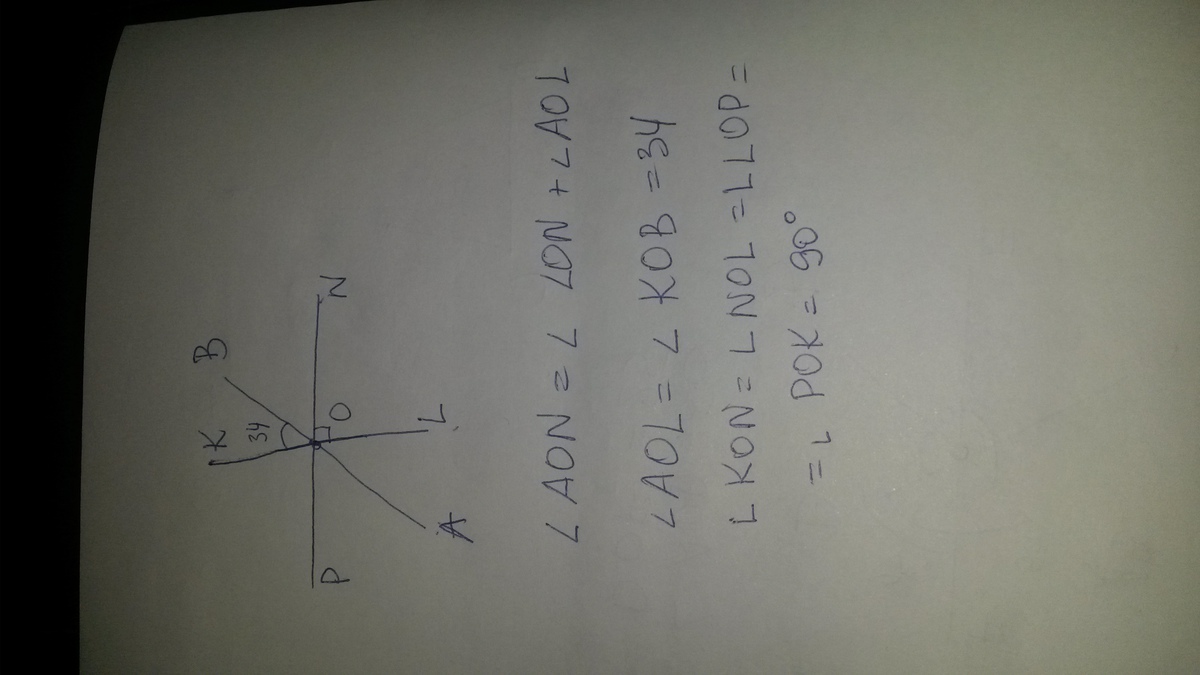 K
B
34
P
O
N
A
L
∠ AON = ∠ LON + ∠ AOL
∠ AOL = ∠ KOB = 34
∠ KON = ∠ NOL = ∠ LOP =
= ∠ POK = 90°